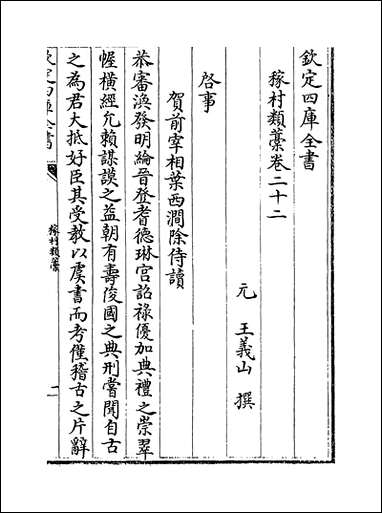 欽定四庫全書
稼村類藁卷二十二
元 王義山 撰
啓事
賀前宰相葉西澗除侍讀
恭審渙發明綸晉登耆德琳宮詔祿優加典禮之崇翠
幄橫經允賴謀謨之益朝有壽俊國之典刑嘗聞自古
之為君大抵好臣其受教以虞書而考僅稽古之片辭
欽定四庫全書
稼村類藁
一